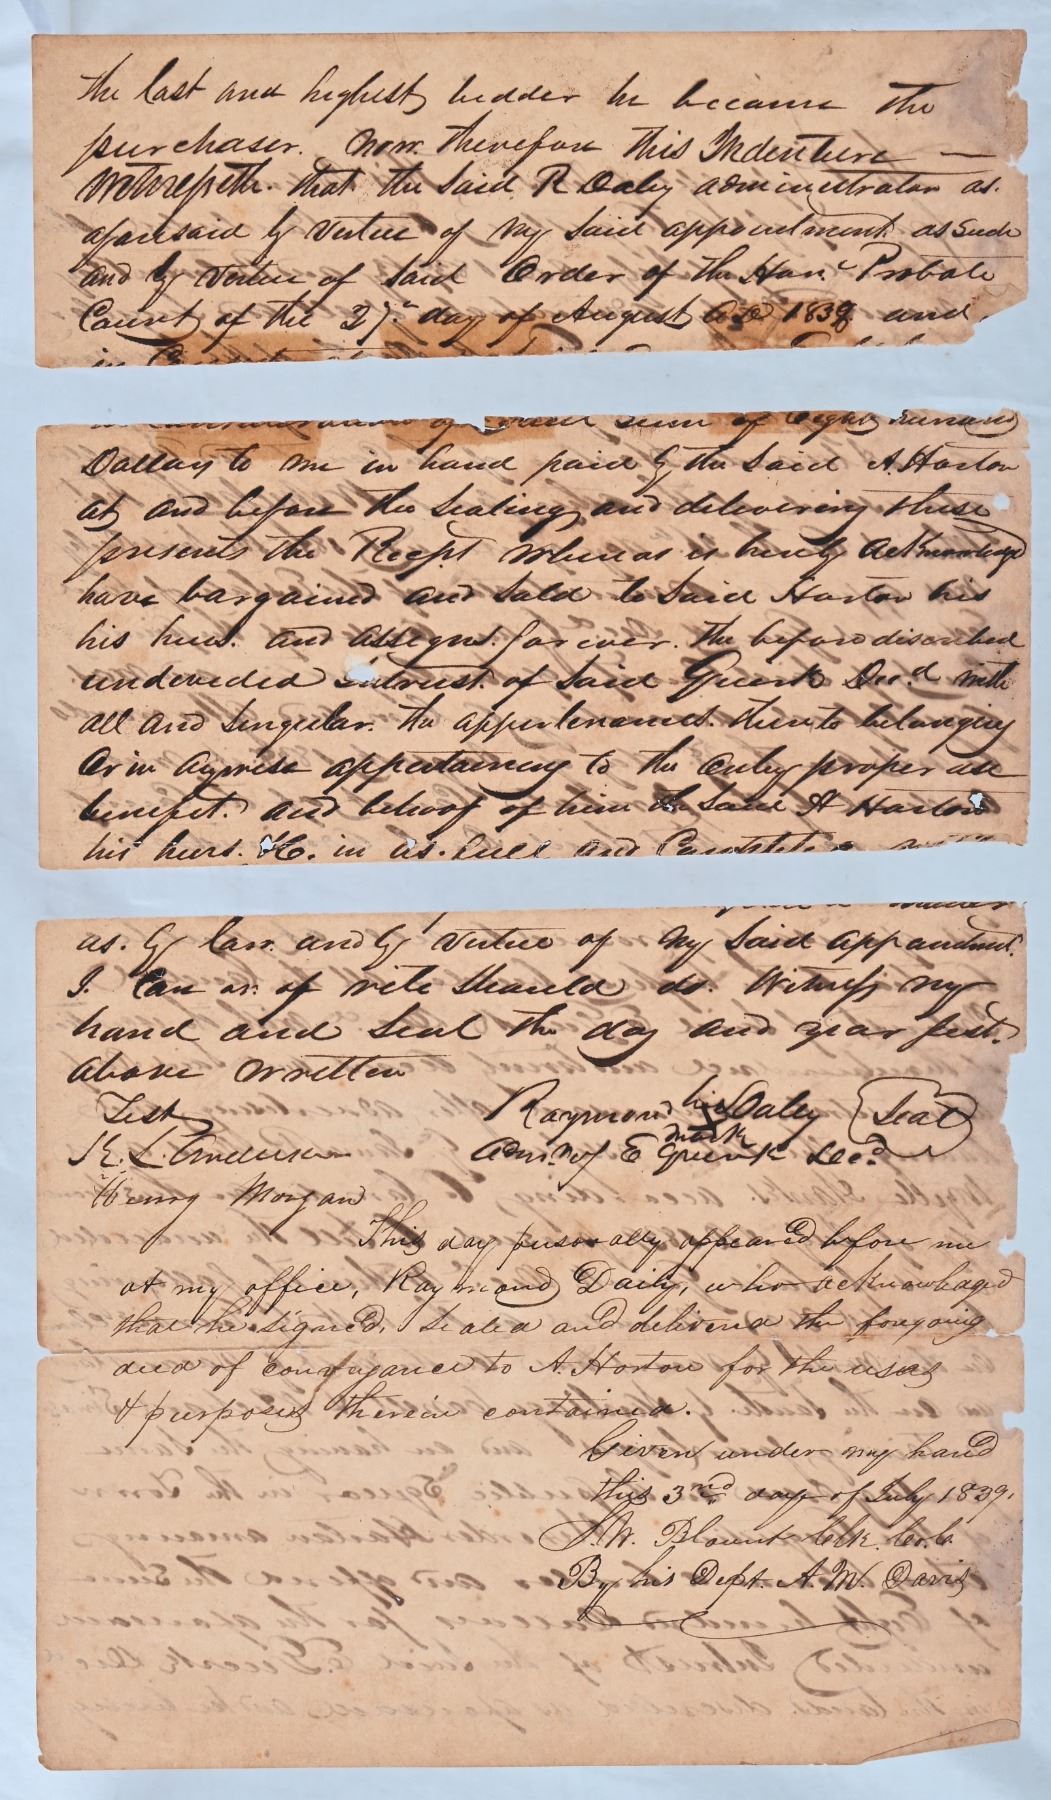 the last and highest bidder he became the
purchaser. Now therefore this Indenture —
Witnesseth. that the Said R Daley administrator as.
aforesaid by Virtue of my Said appointment as Such
and by Virtue of Said Order of the Hon.e Probate
Court of the 27th day of August AD 1838 and
in
of said sum of Eight hundred
Dollars to me in hand paid by the Said A. Horton
at and before the Sealing and delivering these
presents the Recept Whereas is hereby acknowledged
have bargained and Sold to Said Horton his
his heirs. and assigns. forever. the before discribed
undevided Intrust. of Said Guerk Dec.d with
all and Singular. the appertenances. thereto belonging
Or in aywise appertaining to the Only proper use
benifit. and behoof of him the Said A Horton
his heirs. &C. in as. full and
manner
as. by law. and by Virtue of my Said appointmt.
I. Can or. of rite Should do. Witness my
hand and Seal the day and year first.
above written
Test
Raymond his Daley Seal
mark
K. L. Anderson
Adm.r of E Guerk Dec.d
Henry Morgan
This day personally appeared before me
at my office, Raymond Daily, who acknowledged
that he signed, sealed and deliverd the foregoing
deed of conveyance to A. Horton for the uses
& purposes therein contained.
Given under my hand
this 3rd day of July 1839.
S. W. Blount Clk. Co. C.
By his Dept. A. W. Davis